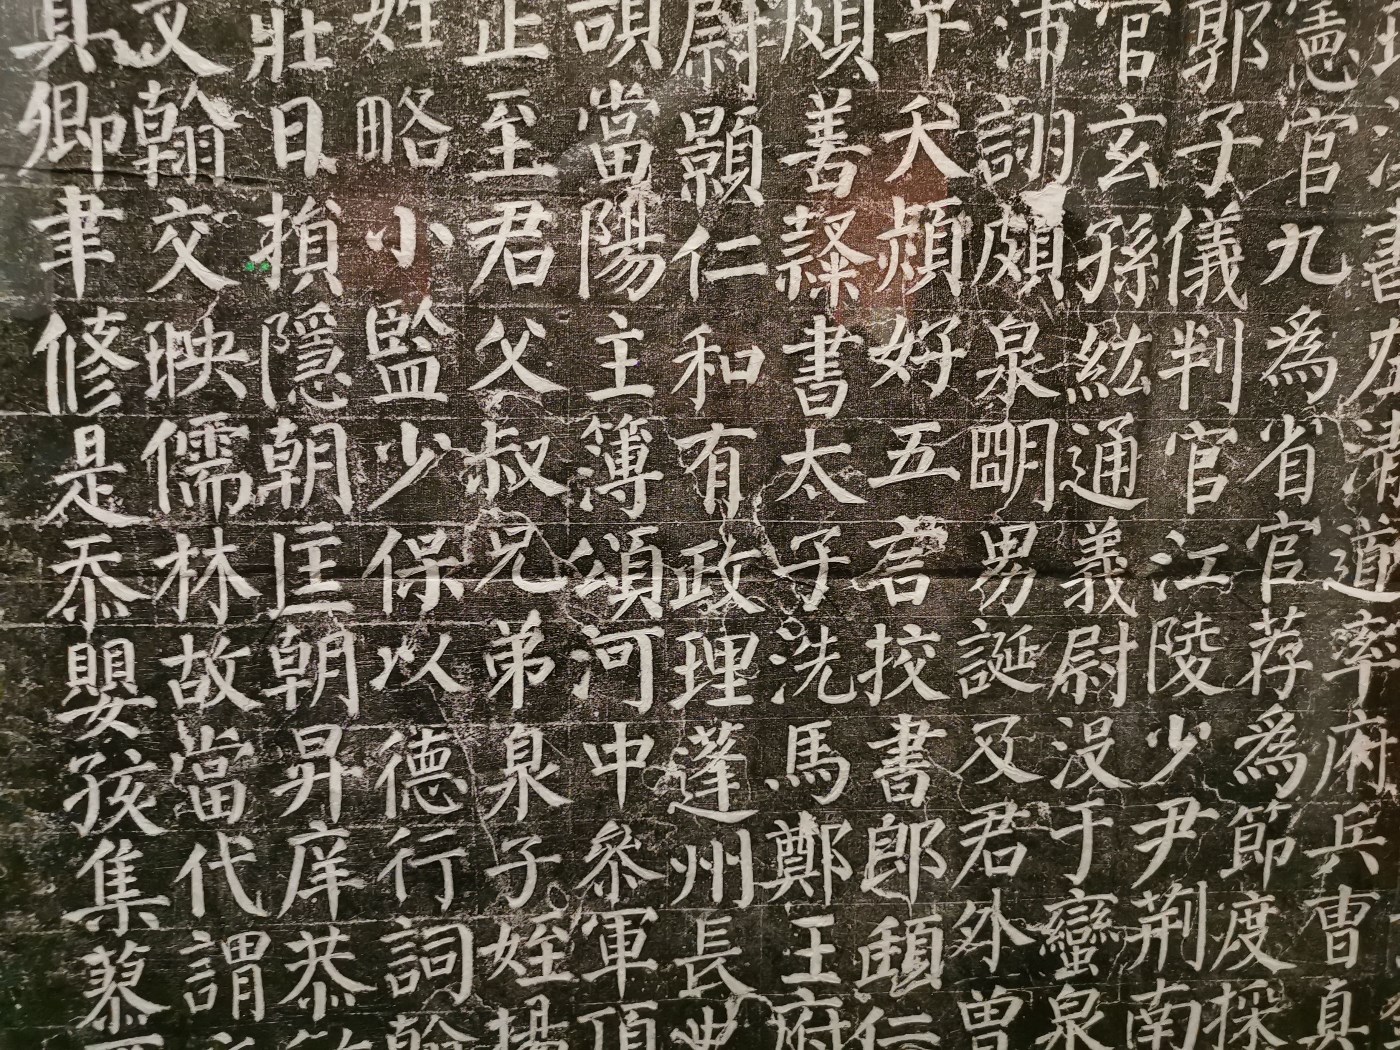 書清道率府兵曹真
憲官九為省官荐為節度採
郭子儀判官江陵少尹荊南
官玄孫紘通義尉沒于蠻泉
沛詡頗泉明男誕及君外曾
早夭頍好五言挍書郎頲仁
頗善隸書太子洗馬鄭王府
尉顯仁和有政理蓬州長史
當陽主簿頌河中叅軍頂
正至君父叔兄弟泉子姪揚
姓略小監少保以德行詞翰
壯日損隱朝匡朝昇庠恭敏
文翰交映儒林故當代謂
真卿聿修是忝嬰孩集蓼